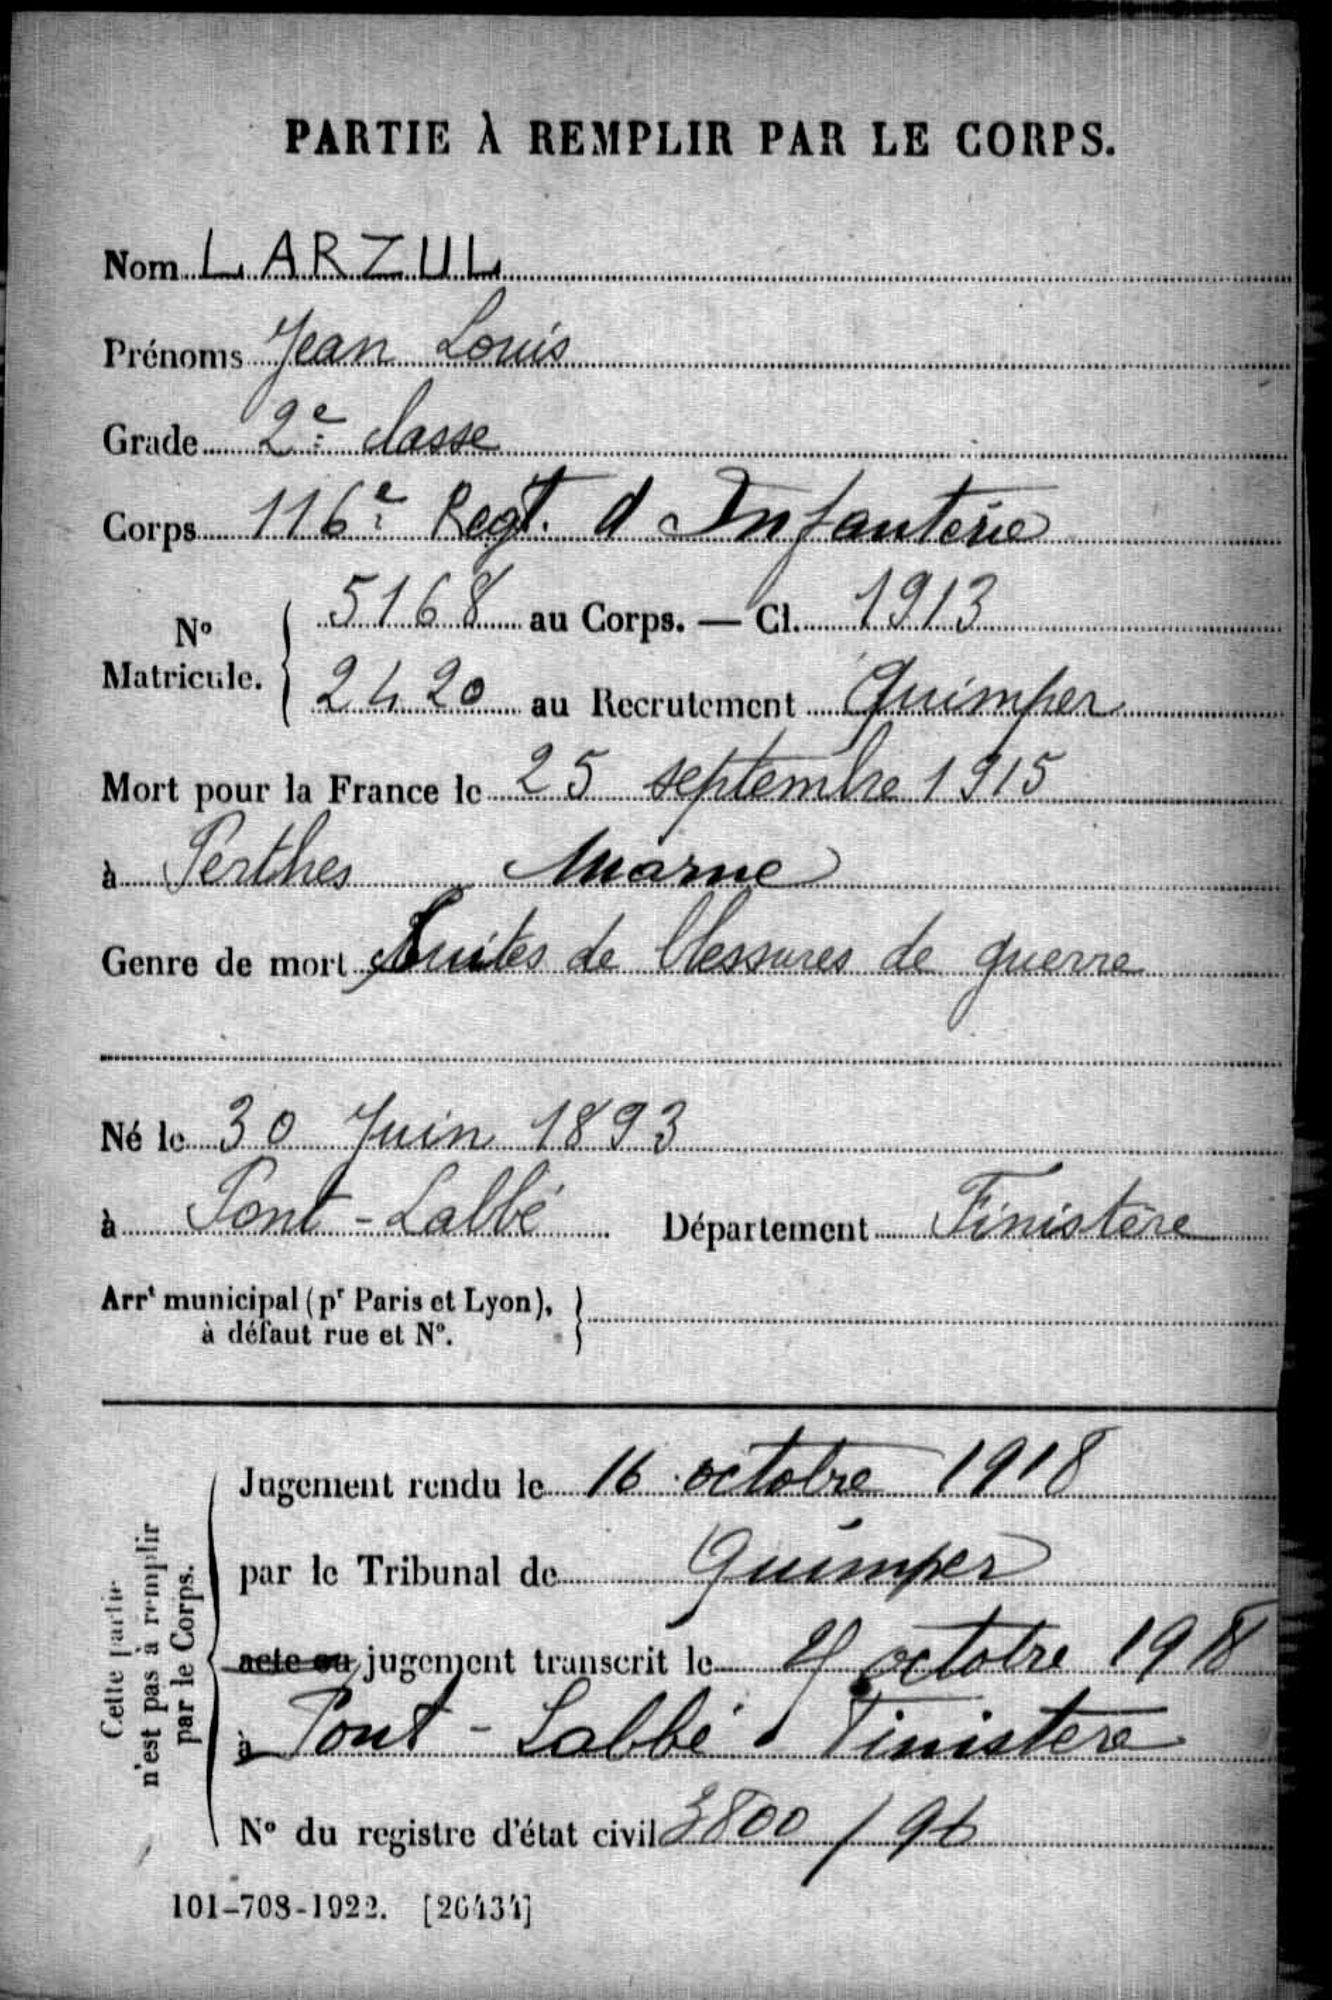 PARTIE À REMPLIR PAR LE CORPS.
Nom LARZUL
Prénoms Jean Louis
Grade 2e classe
Corps 116e Regt. d Infanterie
No Matricule. { 5168 au Corps. — Cl. 1913
2420 au Recrutement Quimper
Mort pour la France le 25 septembre 1915
à Perthes Marne
Genre de mort Suites de blessures de guerre
Né le 30 Juin 1893
à Pont-Labbé Département Finistère
Arrt municipal (pr Paris et Lyon), }
à défaut rue et No.
Cette partie
n'est pas à remplir
par le Corps.
Jugement rendu le 16 octobre 1918
par le Tribunal de Quimper
acte ou jugement transcrit le octobre 1918
à Pont-Labbé Finistère
No du registre d'état civil 3800 / 96
101-708-1922. [26434]